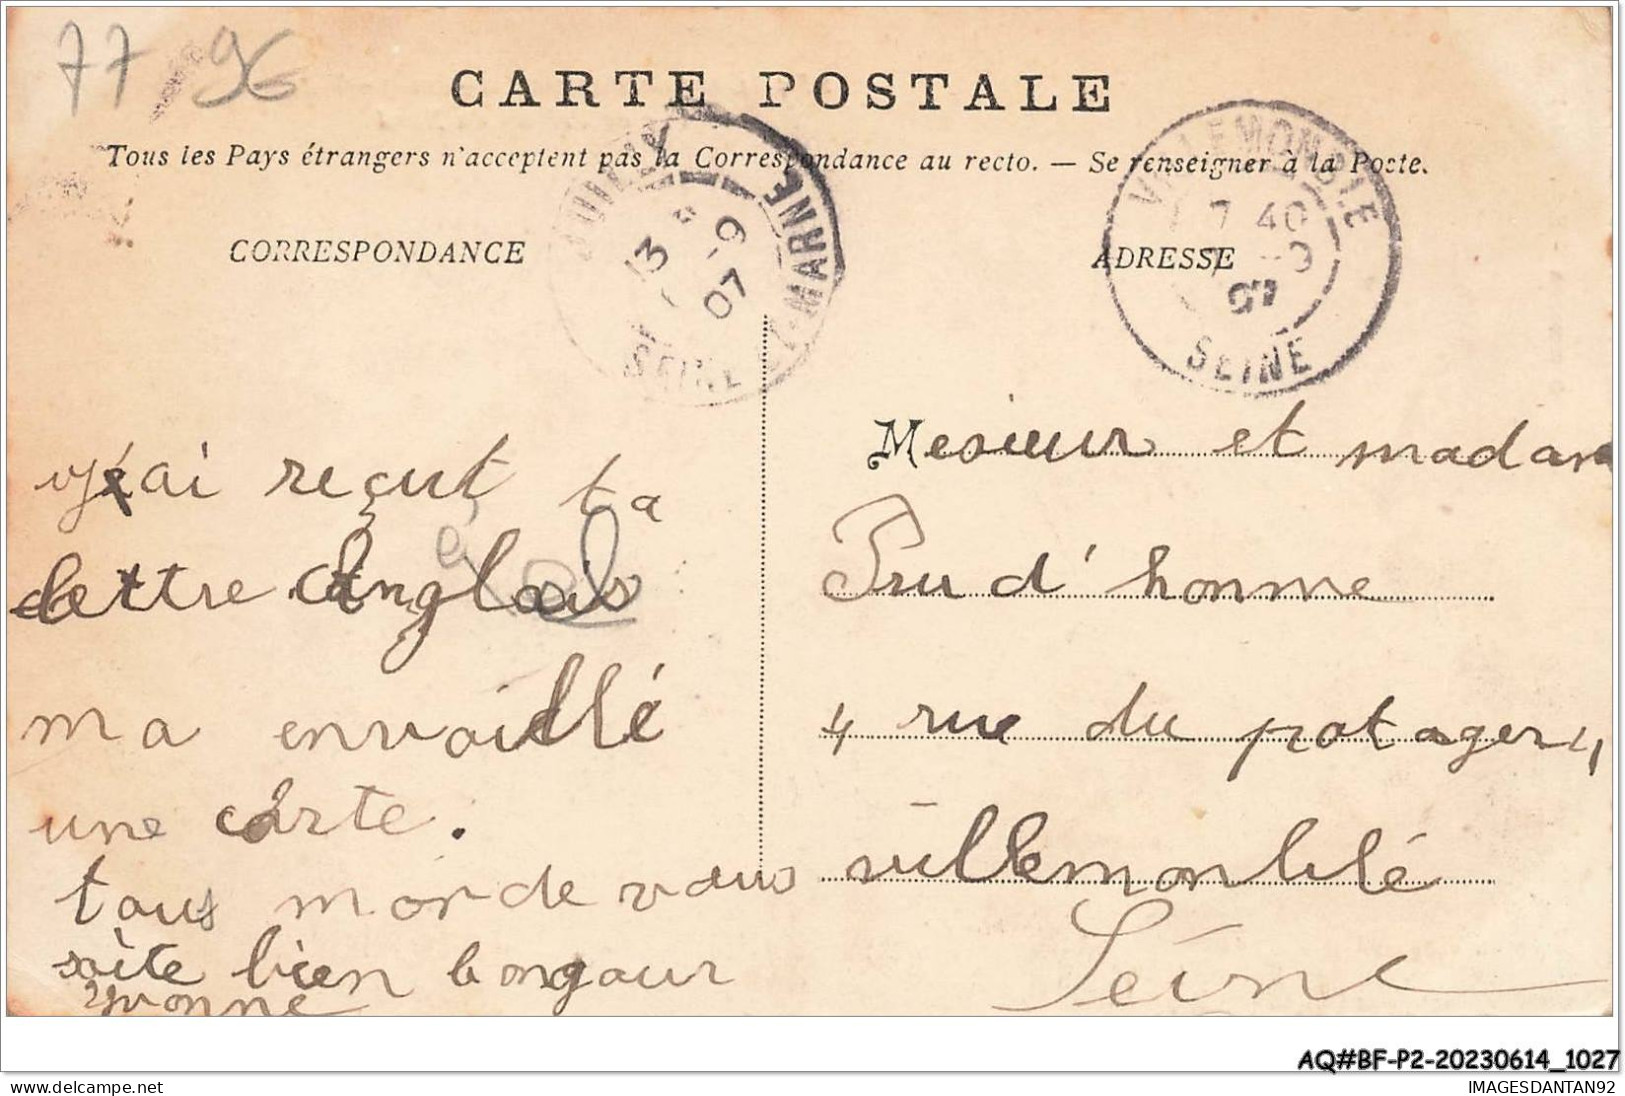 77 96
CARTE POSTALE
Tous les Pays étrangers n'acceptent pas la Correspondance au recto. — Se renseigner à la Poste.
CORRESPONDANCE
13
-9
07
SEINE-ET-MARNE
ADRESSE
VILLEMONBLE
7 40
-9
07
SEINE
j'ai reçut ta
lettre Anglais
ma envoillé
une carte.
tous monde vous
soite bien bongour
Yvonne
Mesieur et madame
Prud'honme
4 rue du potager 4
villemonblé
Séine
AQ#BF-P2-20230614_1027
delcampe.net
IMAGESDANTAN92